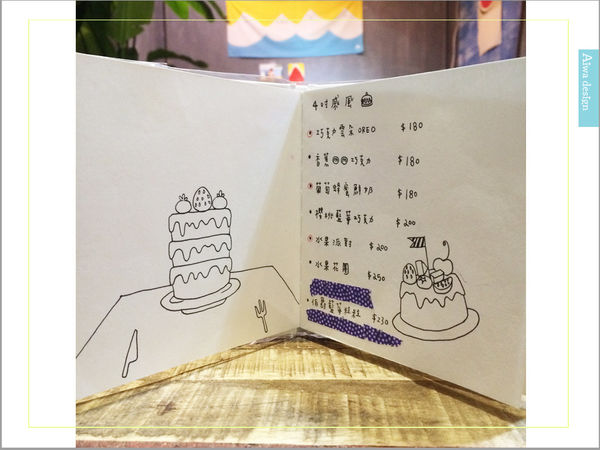 4吋戚風
巧克力雲朵 OREO $180
香蕉 巧克力 $180
葡萄蜂蜜鮮奶 $180
櫻桃藍莓巧克力 $200
水果派對 $200
水果花園 $250
伯爵藍莓 $230
Aiwa design